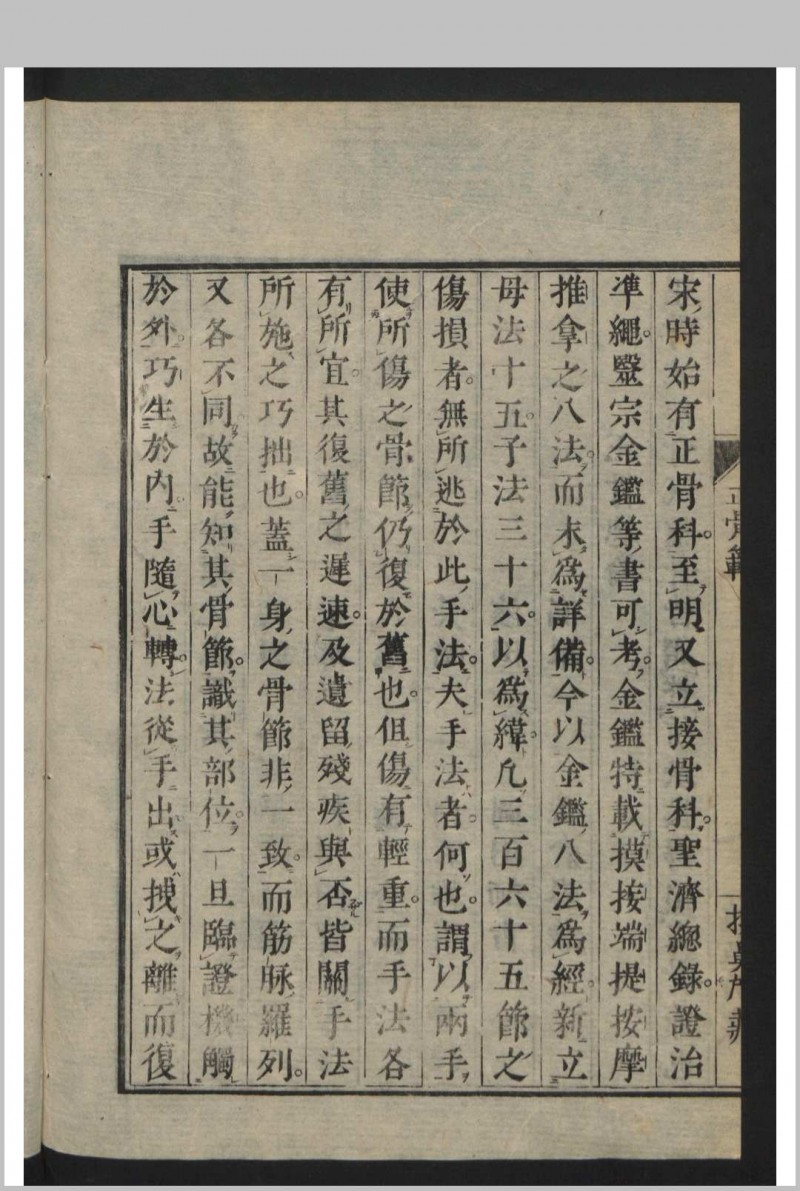 正骨範
宋時始有正骨科。至明又立接骨科。聖濟總錄。證治
準繩。毉宗金鑑等書可考。金鑑特載摸按端提按摩
推拿之八法。而未爲詳備。今以金鑑八法爲經。新立
母法十五。子法三十六。以爲緯。凡三百六十五節之
傷損者。無所逃於此手法。夫手法者。何也。謂以兩手
使所傷之骨節仍復於舊也。但傷有輕重。而手法各
有所宜。其復舊之遲速。及遺留殘疾與否。皆關手法
所施之巧拙也。蓋一身之骨節非一致。而筋脉羅列。
又各不同。故能知其骨節。識其部位。一旦臨證。機觸
於外。巧生於內。手隨心轉。法從手出。或拽之離而復